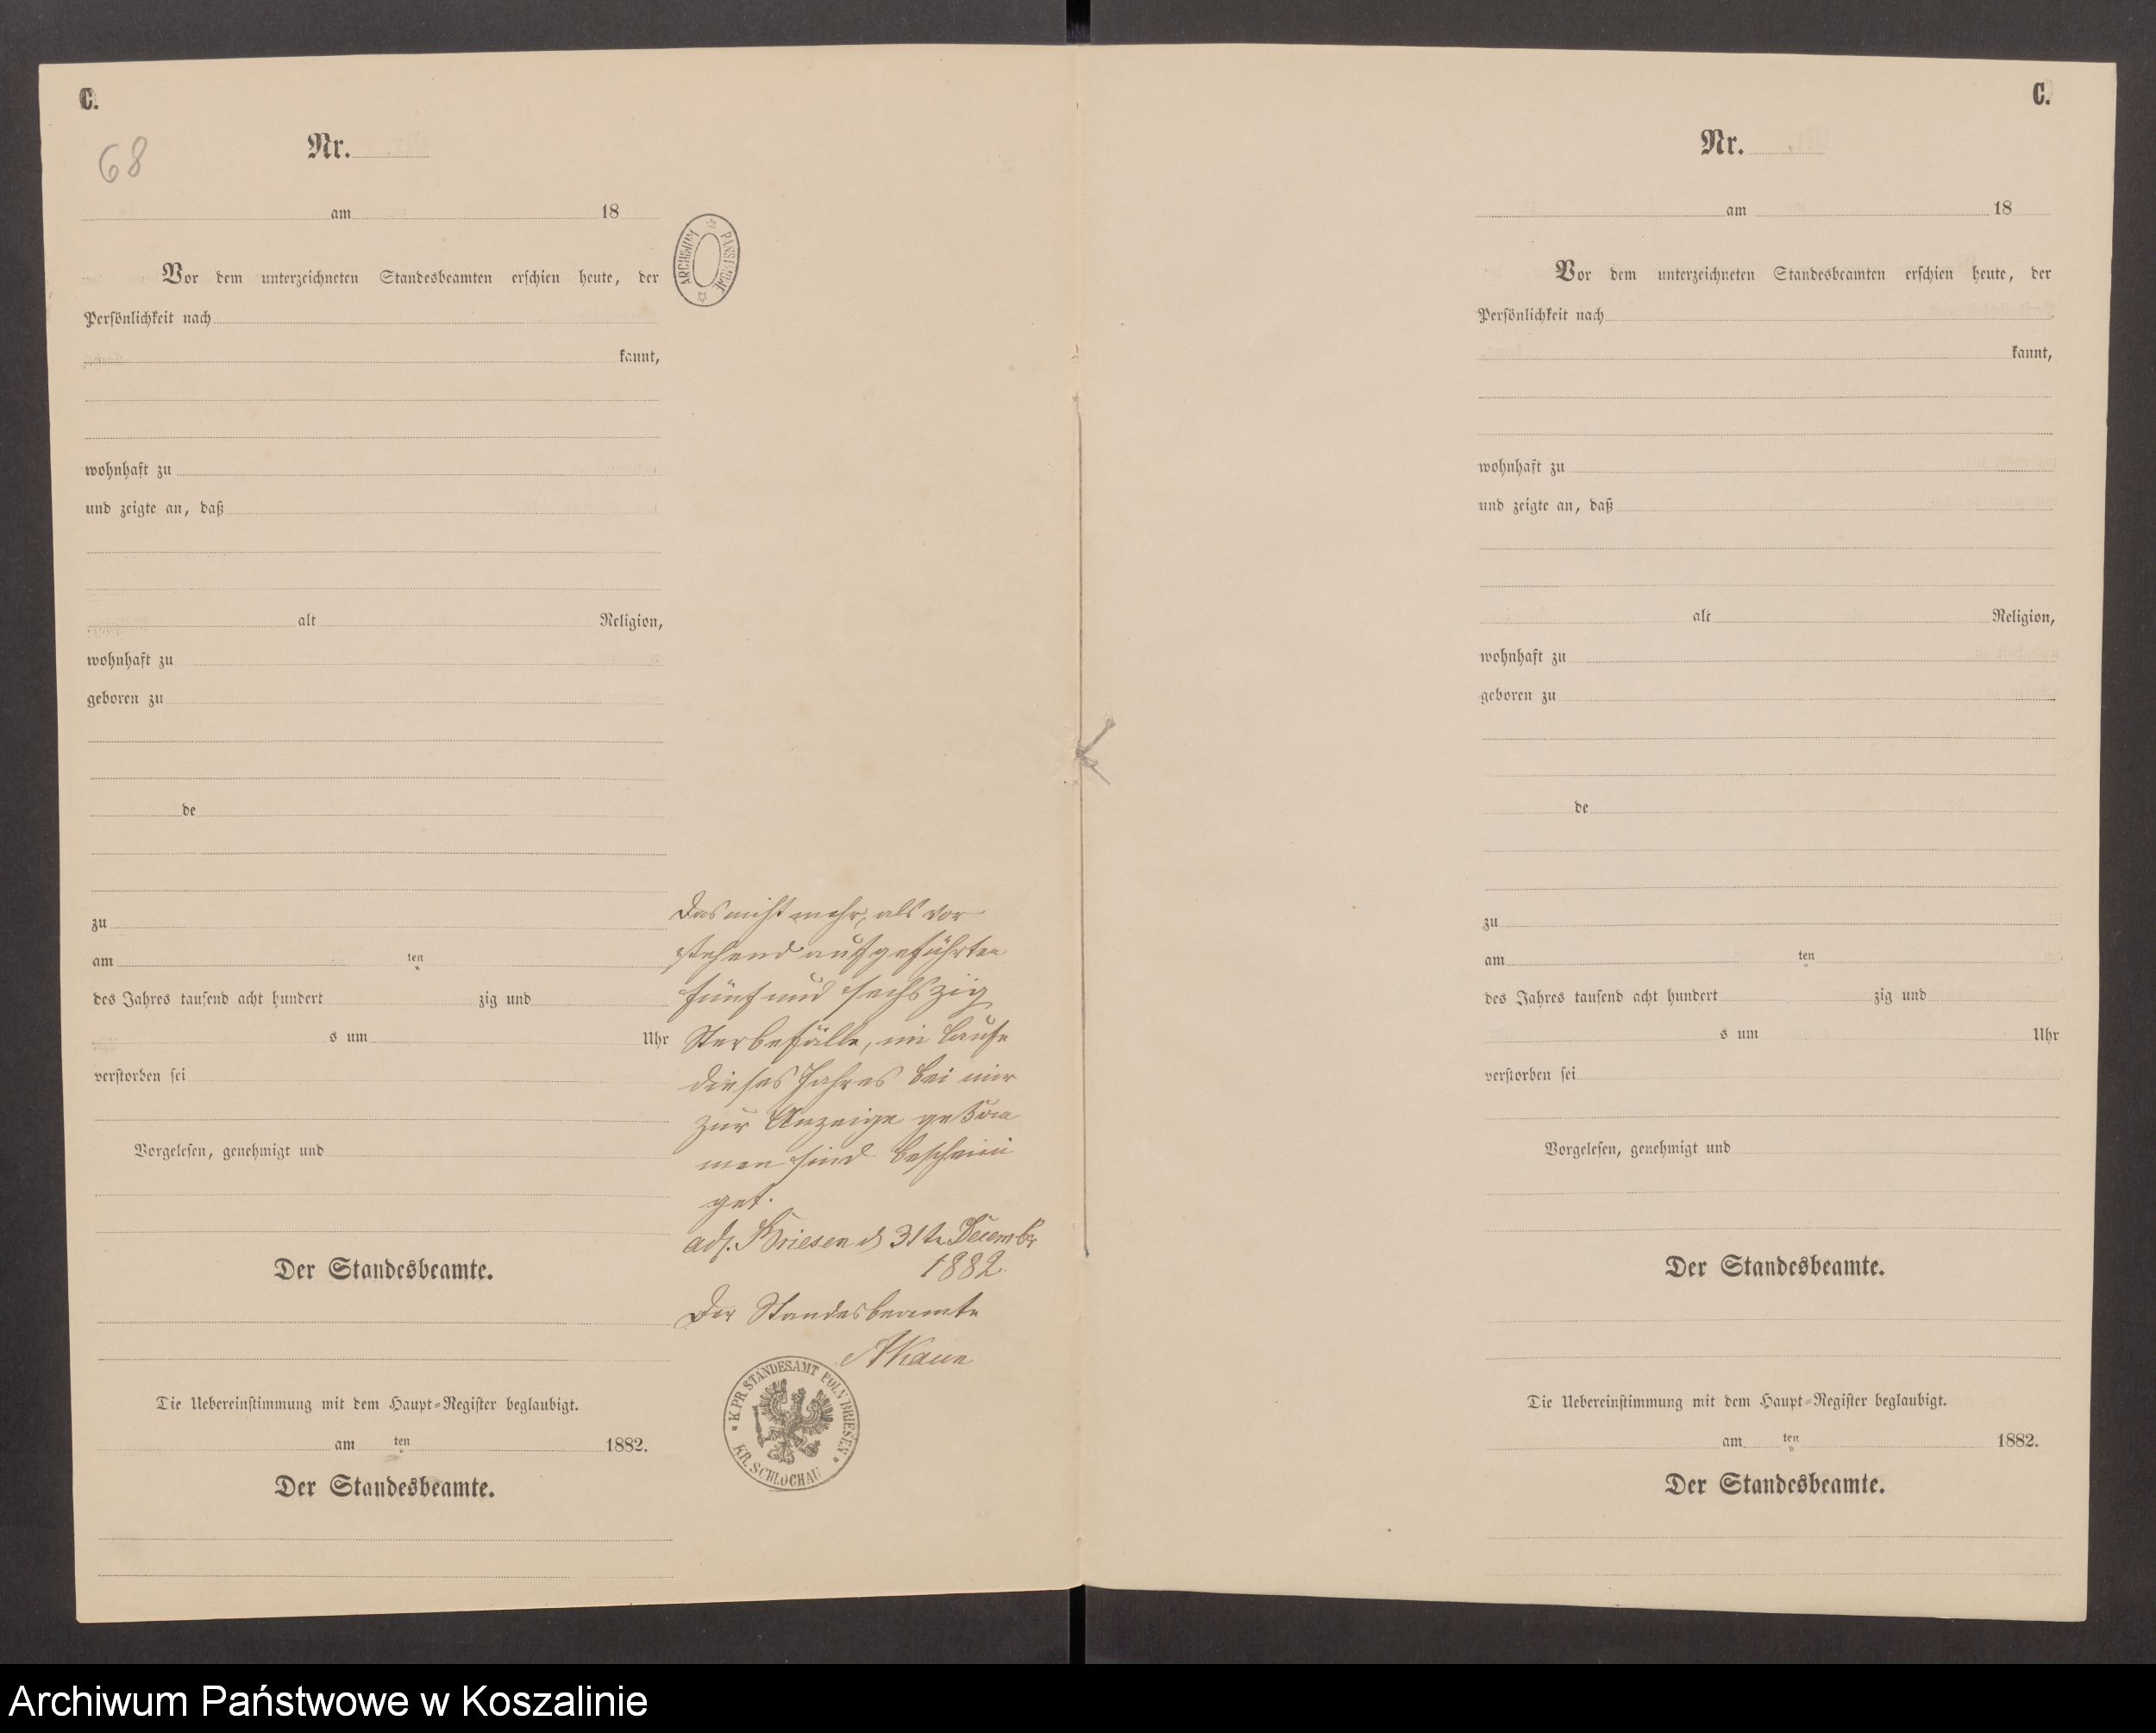 C.
68
Nr.
am 18
ARCHIWUM PAŃSTWOWE
Vor dem unterzeichneten Standesbeamten erschien heute, der
Persönlichkeit nach
kannt,
wohnhaft zu
und zeigte an, daß
alt Religion,
wohnhaft zu
geboren zu
de
zu
am ten
des Jahres tausend acht hundert zig und
s um Uhr
verstorben sei
Vorgelesen, genehmigt und
Der Standesbeamte.
Die Uebereinstimmung mit dem Haupt-Register beglaubigt.
am ten 1882.
Der Standesbeamte.
Das nicht mehr, als vor
stehend aufgeführten
fünf und sechszig
Sterbefälle, im Laufe
dieses Jahres bei mir
zur Anzeige gekom
men sind beschein
get.
Briesen d 31t December
1882.
Der Standesbeamte
K. PR. STANDESAMT POLN. BRIESEN
KR. SCHLOCHAU
C.
Nr.
am 18
Vor dem unterzeichneten Standesbeamten erschien heute, der
Persönlichkeit nach
kannt,
wohnhaft zu
und zeigte an, daß
alt Religion,
wohnhaft zu
geboren zu
de
zu
am ten
des Jahres tausend acht hundert zig und
s um Uhr
verstorben sei
Vorgelesen, genehmigt und
Der Standesbeamte.
Die Uebereinstimmung mit dem Haupt-Register beglaubigt.
am ten 1882.
Der Standesbeamte.
Archiwum Państwowe w Koszalinie